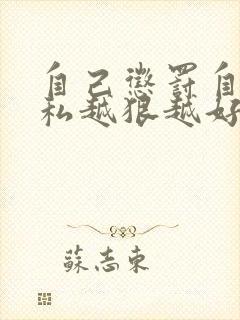 自己懲罰自
私越狠越好
蘇志東